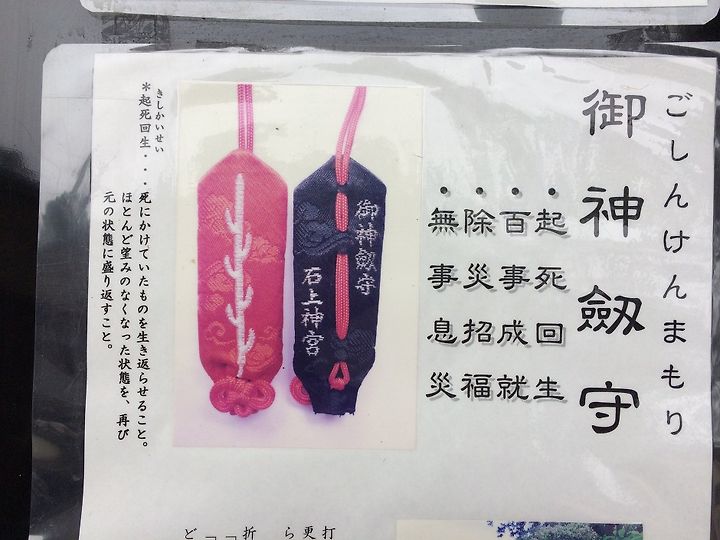 ごしんけんまもり
御神劔守
・起死回生
・百事成就
・除災招福
・無事息災
御神劔守
石上神宮
きしかいせい
*起死回生・・・死にかけていたものを生き返らせること。
ほとんど望みのなくなった状態を、再び
元の状態に盛り返すこと。
打
更
ら
折
「
「
ど